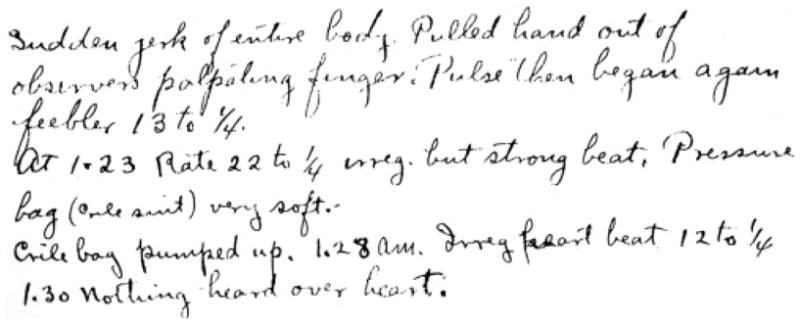 Sudden jerk of entire body. Pulled hand out of
observers palpating finger. Pulse then began again
feebler 13 to 1/4.
At 1.23 Rate 22 to 1/4 irreg. but strong beat. Pressure
bag (Crile suit) very soft.-
Crile bag pumped up. 1.28 am. Irreg heart beat 12 to 1/4
1.30 Nothing heard over heart.